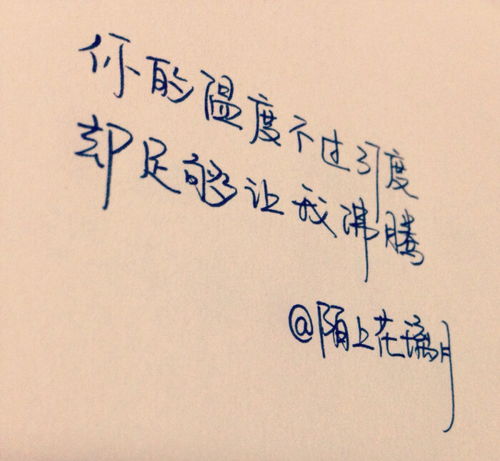 你的温度不过37度
却足够让我沸腾
@陌上花璃月